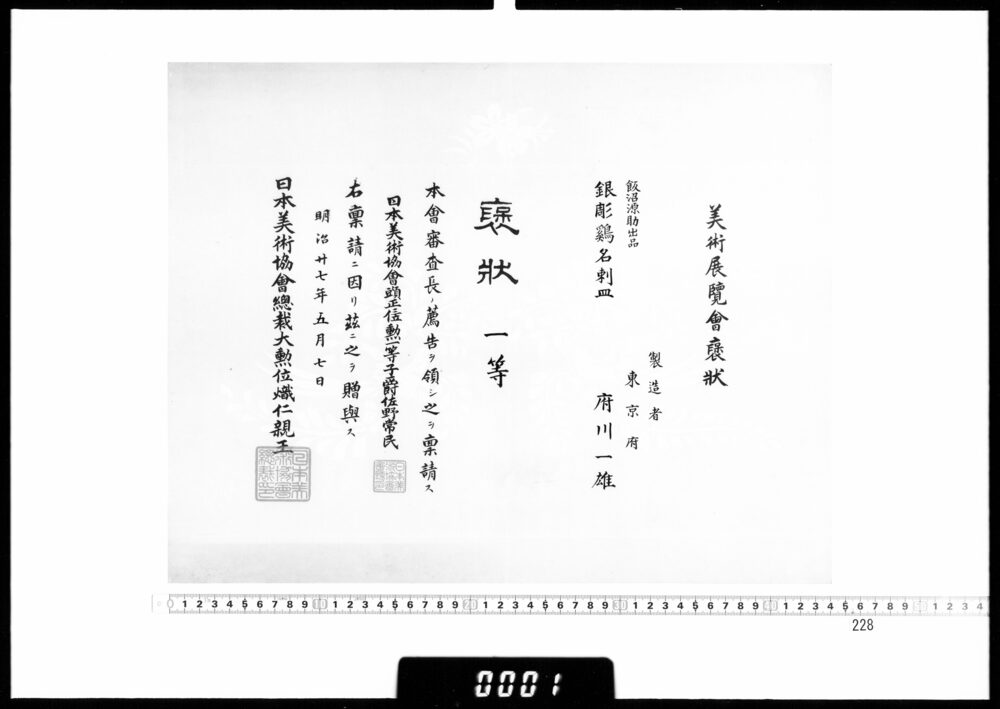 美術展覽會褒狀
製造者
東京府
府川一雄
飯沼源助出品
銀彫鷄名刺皿
褒狀 一等
本會審査長ノ薦告ヲ領シ之ヲ稟請ス
日本美術協會頭正二位勲一等子爵佐野常民
右稟請ニ因リ茲ニ之ヲ贈與ス
明治廿七年五月七日
日本美術協會總裁大勲位熾仁親王
0 1 2 3 4 5 6 7 8 9 10 1 2 3 4 5 6 7 8 9 20 1 2 3 4 5 6 7 8 9 30 1 2 3 4 5 6 7 8 9 40 1 2 3 4 5 6 7 8 9 50 1 2 3 4
228
0001